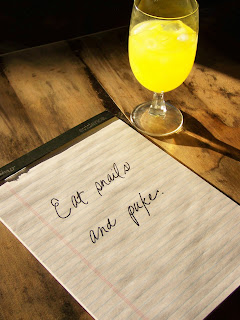 Eat snails
and puke.